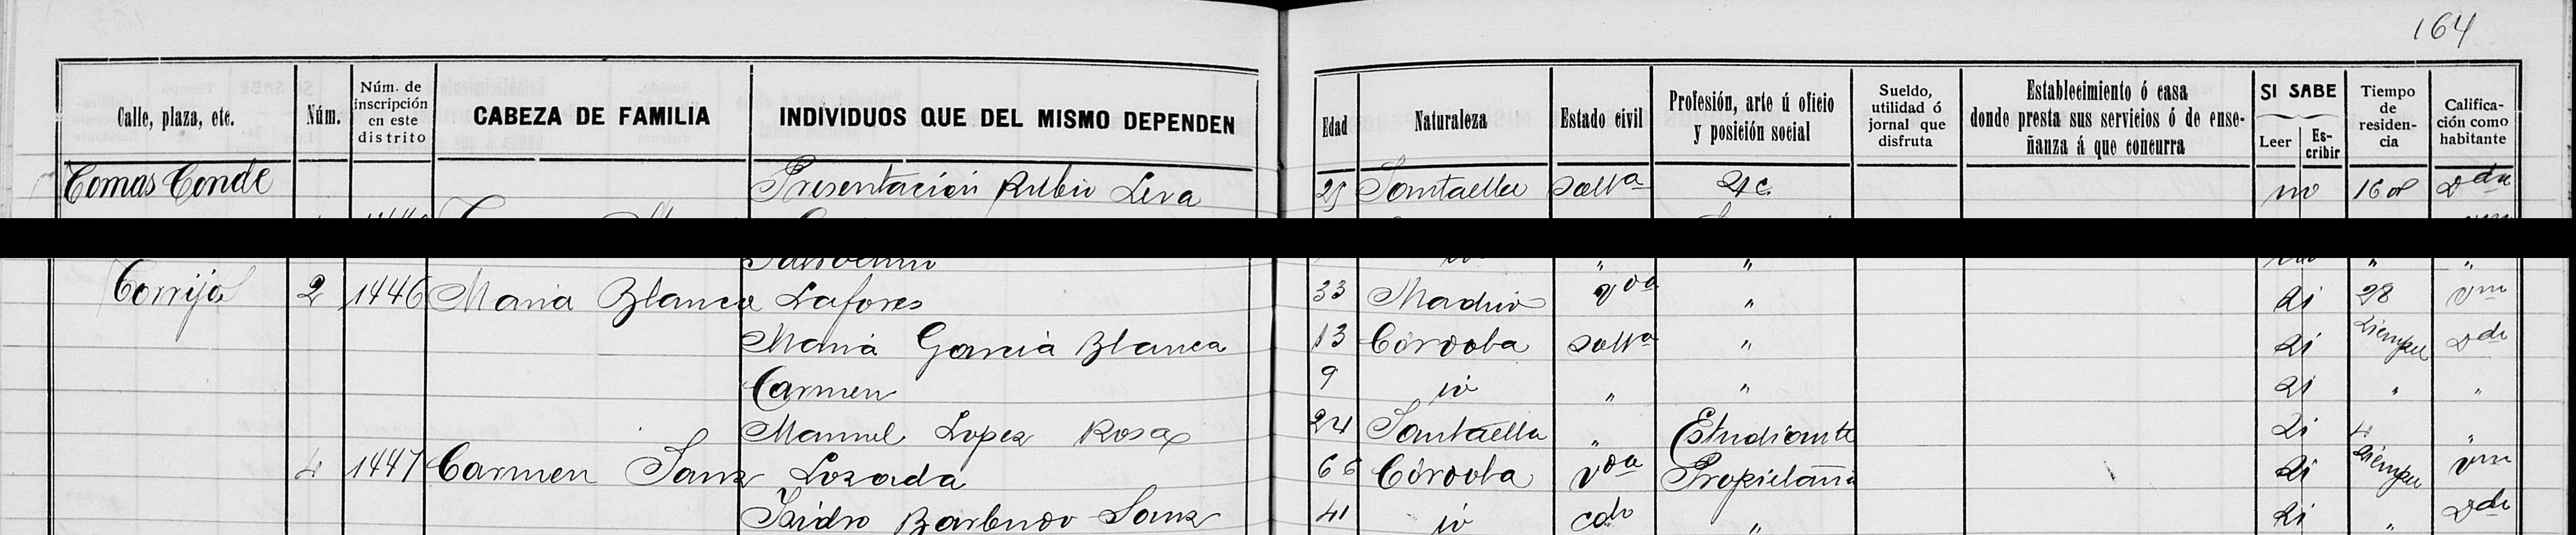 164
Calle, plaza, etc. Núm. Núm. de inscripción en este distrito CABEZA DE FAMILIA INDIVIDUOS QUE DEL MISMO DEPENDEN Edad Naturaleza Estado civil Profesión, arte ú oficio y posición social Sueldo, utilidad ó jornal que disfruta Establecimiento ó casa donde presta sus servicios ó de enseñanza á que concurra SI SABE Leer Escribir Tiempo de residencia Calificación como habitante
Tomas Conde Presentación Rubio Leva 25 Santaella solta no 16 Dda
Torrijo 2 1446 Maria Blanca Lafores 33 Madrid vda " si 28 vna
Maria Garcia Blanca 13 Córdoba solta " si siempre Dda
Carmen 9 id " " si " "
Manuel Lopez Rosa 24 Santaella " Estudiante si 4 "
4 1447 Carmen Sanz Lozada 66 Córdoba vda Propietaria si siempre vna
Isidro Barbudo Sanz 41 id cdo " si " Ddo